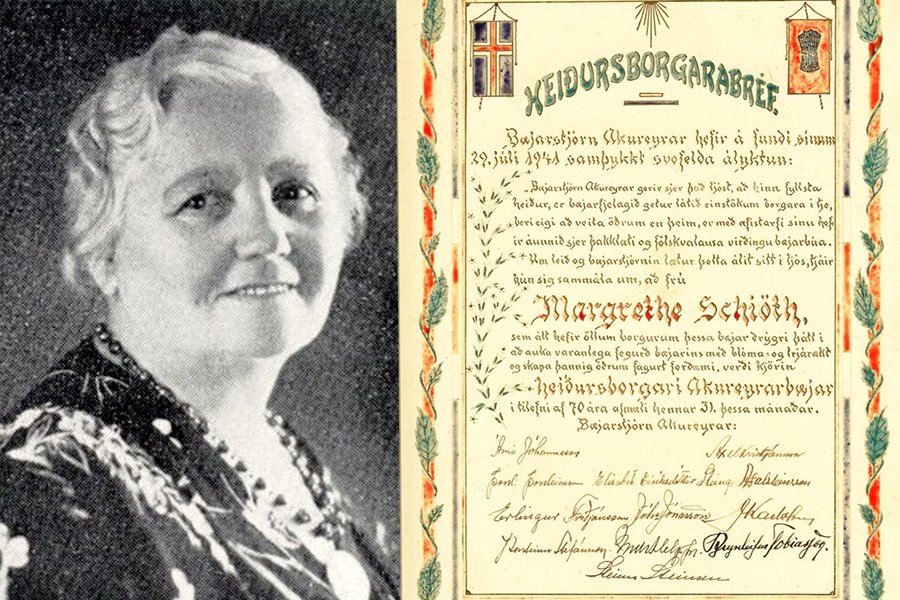 HEIÐURSBORGARABRÉF.
Bæjarstjórn Akureyrar hefir á fundi sínum
29. júlí 1941 samþykkt svofelda ályktun:
„Bæjarstjórn Akureyrar gerir sjer það ljóst, að hinn fyllsta
heiður, er bæjarfjelagið getur látið einstökum borgara í tje,
beri eigi að veita öðrum en þeim, er með æfistarfi sínu hef-
ir áunnið sjer þakklæti og fölskvalausa virðingu bæjarbúa.
Um leið og bæjarstjórnin lætur þetta álit sitt í ljós, tjáir
hún sig sammála um, að frú
Margrethe Schiöth,
sem átt hefir öllum borgurum þessa bæjar drýgri þátt í
að auka varanlega fegurð bæjarins með blóma- og trjárækt
og skapa þannig öðrum fagurt fordæmi, verði kjörin
heiðursborgari Akureyrarbæjar
í tilefni af 70 ára afmæli hennar 31. þessa mánaðar.
Bæjarstjórn Akureyrar:
Árni Jóhannsson Axel Kristjánsson
Þorst. Þorsteinsson Elísabet Eiríksdóttir
Erlingur Friðjónsson Jakob Karlsson
Þorsteinn Stefánsson Brynleifur Tobiasson.
Steinn Steinsen